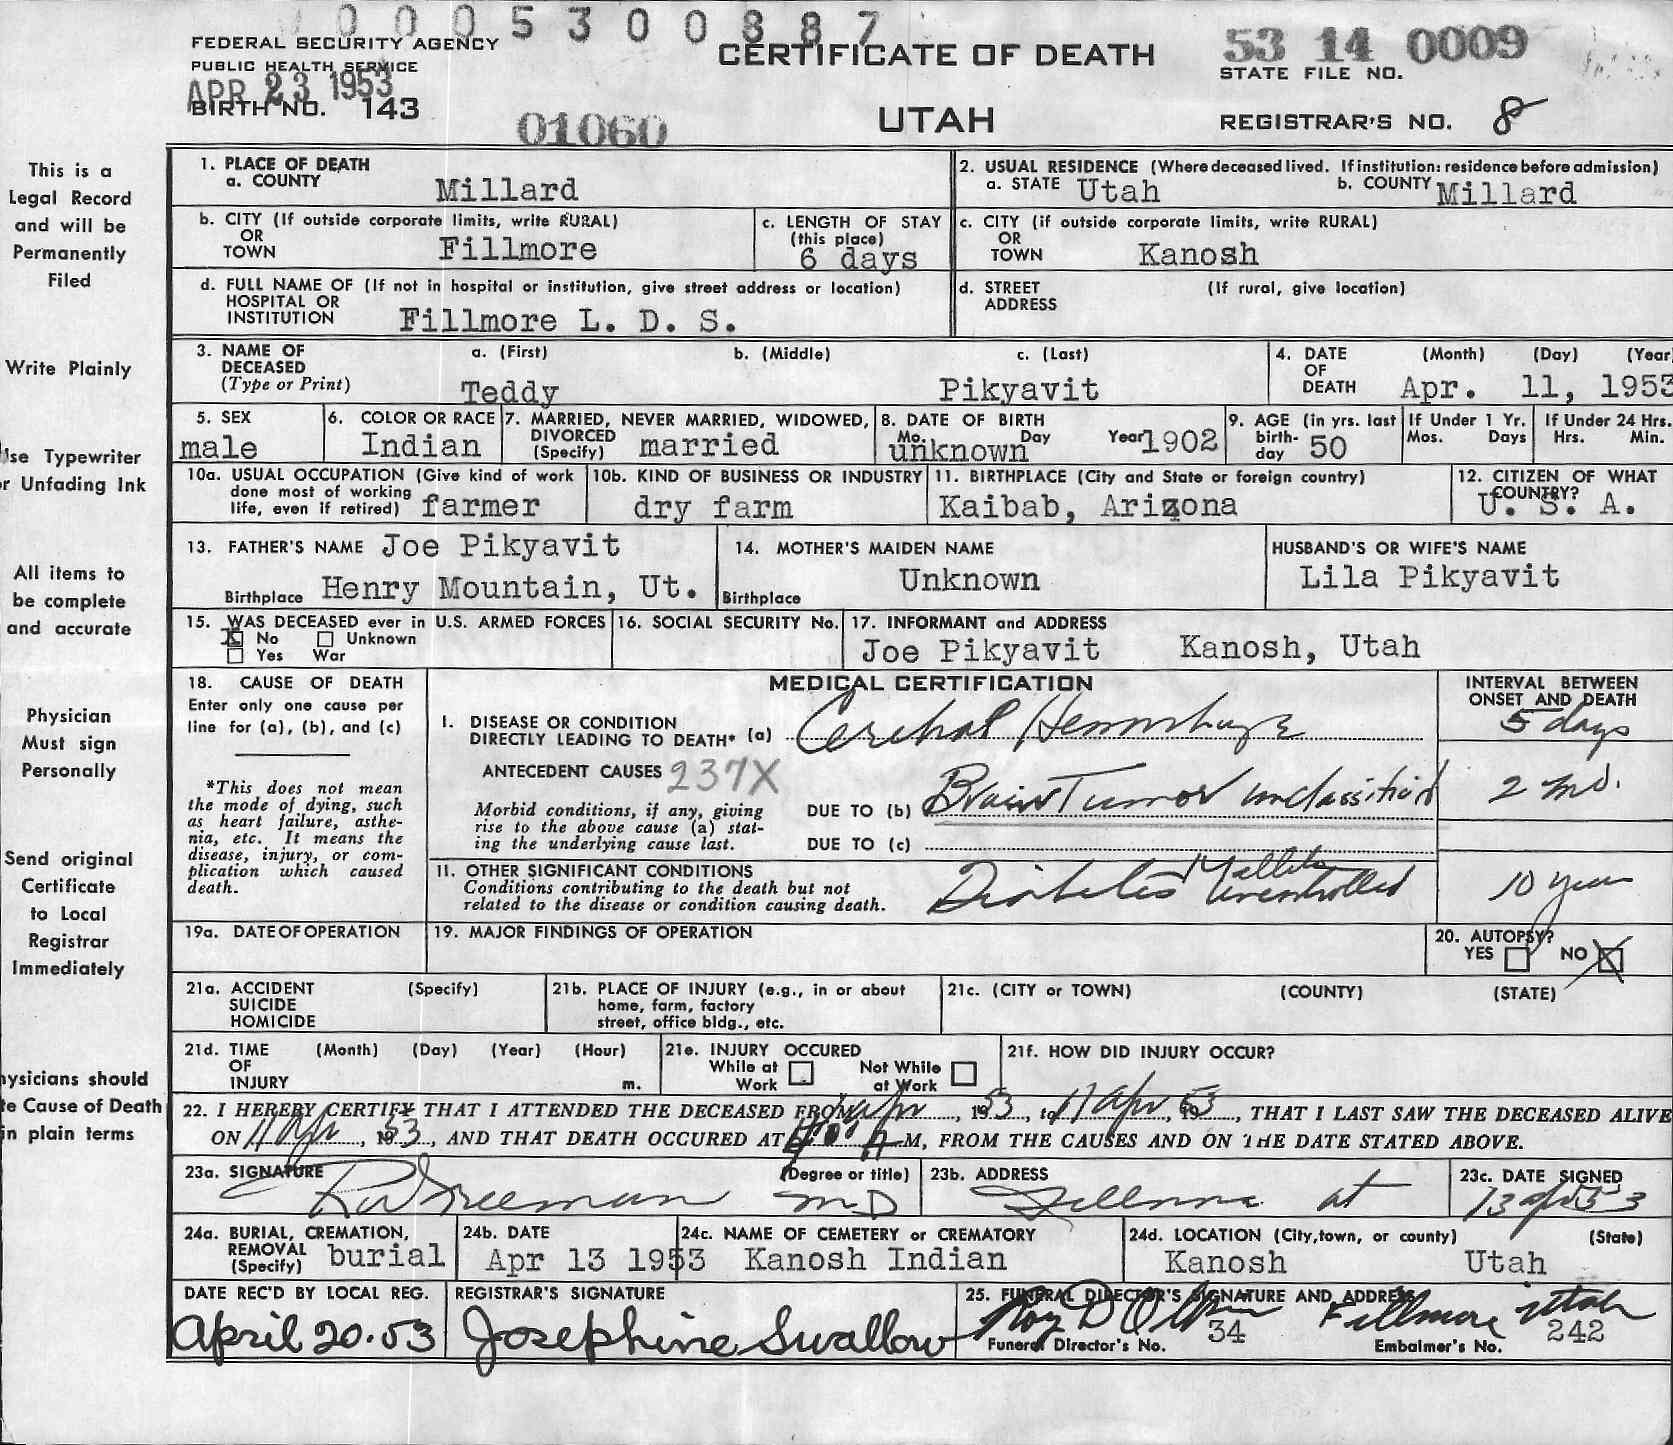 0 0 0 5 3 0 0 8 8 7
FEDERAL SECURITY AGENCY
PUBLIC HEALTH SERVICE
APR 23 1953
BIRTH NO. 143
01060
CERTIFICATE OF DEATH
UTAH
53 14 0009
STATE FILE NO.
REGISTRAR'S NO. 8
This is a
Legal Record
and will be
Permanently
Filed
Write Plainly
Use Typewriter
or Unfading Ink
All items to
be complete
and accurate
Physician
Must sign
Personally
Send original
Certificate
to Local
Registrar
Immediately
ysicians should
te Cause of Death
in plain terms
1. PLACE OF DEATH
a. COUNTY Millard
2. USUAL RESIDENCE (Where deceased lived. If institution: residence before admission)
a. STATE Utah b. COUNTY Millard
b. CITY (If outside corporate limits, write RURAL)
OR
TOWN Fillmore
c. LENGTH OF STAY
(this place)
6 days
c. CITY (if outside corporate limits, write RURAL)
OR
TOWN Kanosh
d. FULL NAME OF (If not in hospital or institution, give street address or location)
HOSPITAL OR
INSTITUTION Fillmore L. D. S.
d. STREET (If rural, give location)
ADDRESS
3. NAME OF a. (First) b. (Middle) c. (Last)
DECEASED
(Type or Print) Teddy Pikyavit
4. DATE (Month) (Day) (Year)
OF
DEATH Apr. 11, 1953
5. SEX
male
6. COLOR OR RACE
Indian
7. MARRIED, NEVER MARRIED, WIDOWED,
DIVORCED
(Specify) married
8. DATE OF BIRTH
Mo. Day Year
unknown 1902
9. AGE (in yrs. last
birth-
day 50
If Under 1 Yr.
Mos. Days
If Under 24 Hrs.
Hrs. Min.
10a. USUAL OCCUPATION (Give kind of work
done most of working
life, even if retired) farmer
10b. KIND OF BUSINESS OR INDUSTRY
dry farm
11. BIRTHPLACE (City and State or foreign country)
Kaibab, Arizona
12. CITIZEN OF WHAT
COUNTRY?
U. S. A.
13. FATHER'S NAME Joe Pikyavit
Birthplace Henry Mountain, Ut.
14. MOTHER'S MAIDEN NAME
Unknown
Birthplace
HUSBAND'S OR WIFE'S NAME
Lila Pikyavit
15. WAS DECEASED ever in U.S. ARMED FORCES
X No Unknown
Yes War
16. SOCIAL SECURITY No.
17. INFORMANT and ADDRESS
Joe Pikyavit Kanosh, Utah
18. CAUSE OF DEATH
Enter only one cause per
line for (a), (b), and (c)
*This does not mean
the mode of dying, such
as heart failure, asthe-
nia, etc. It means the
disease, injury, or com-
plication which caused
death.
MEDICAL CERTIFICATION
INTERVAL BETWEEN
ONSET AND DEATH
I. DISEASE OR CONDITION
DIRECTLY LEADING TO DEATH* (a) Cerebral Hemorrhage 5 days
ANTECEDENT CAUSES 237X
Morbid conditions, if any, giving
rise to the above cause (a) stat-
ing the underlying cause last.
DUE TO (b) Brain Tumor unclassified 2 mo.
DUE TO (c)
11. OTHER SIGNIFICANT CONDITIONS
Conditions contributing to the death but not
related to the disease or condition causing death.
Diabetes Mellitus uncontrolled 10 years
19a. DATE OF OPERATION
19. MAJOR FINDINGS OF OPERATION
20. AUTOPSY?
YES NO X
21a. ACCIDENT (Specify)
SUICIDE
HOMICIDE
21b. PLACE OF INJURY (e.g., in or about
home, farm, factory
street, office bldg., etc.
21c. (CITY or TOWN) (COUNTY) (STATE)
21d. TIME (Month) (Day) (Year) (Hour)
OF
INJURY m.
21e. INJURY OCCURED
While at Not While
Work at Work
21f. HOW DID INJURY OCCUR?
22. I HEREBY CERTIFY THAT I ATTENDED THE DECEASED FROM Apr, 1953, to 11 Apr, 1953, THAT I LAST SAW THE DECEASED ALIVE
ON 11 Apr, 1953, AND THAT DEATH OCCURED AT A M, FROM THE CAUSES AND ON THE DATE STATED ABOVE.
23a. SIGNATURE (Degree or title)
Freeman MD
23b. ADDRESS
Fillmore
23c. DATE SIGNED
13 Apr 53
24a. BURIAL, CREMATION,
REMOVAL
(Specify) burial
24b. DATE
Apr 13 1953
24c. NAME OF CEMETERY or CREMATORY
Kanosh Indian
24d. LOCATION (City, town, or county) (State)
Kanosh Utah
DATE REC'D BY LOCAL REG.
April 20-53
REGISTRAR'S SIGNATURE
Josephine Swallow
25. FUNERAL DIRECTOR'S SIGNATURE AND ADDRESS
Roy D Fillmore Utah
Funeral Director's No. 34
Embalmer's No. 242